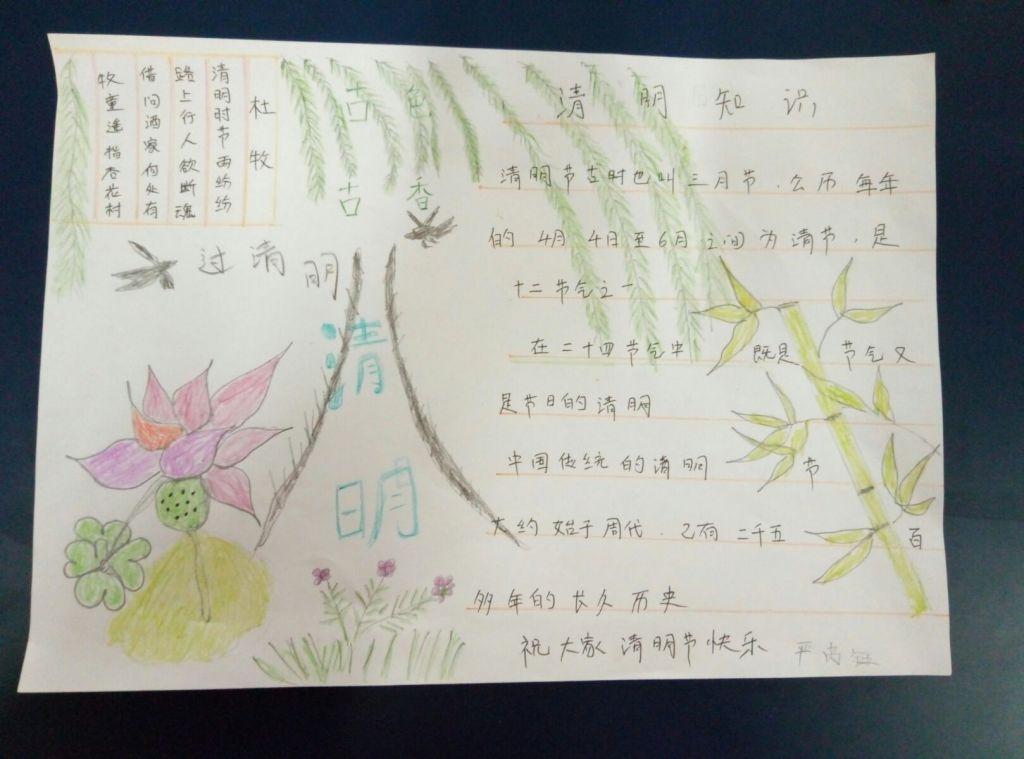 杜牧
清明时节雨纷纷
路上行人欲断魂
借问酒家何处有
牧童遥指杏花村
古色
古香
过清明
清明
清明知识
清明节古时也叫三月节.公历每年
的4月4日至6月之间为清节,是
十二节气之一
在二十四节气中既是节气又
是节日的清明
中国传统的清明节
大约始于周代.已有二千五百
多年的长久历史
祝大家清明节快乐